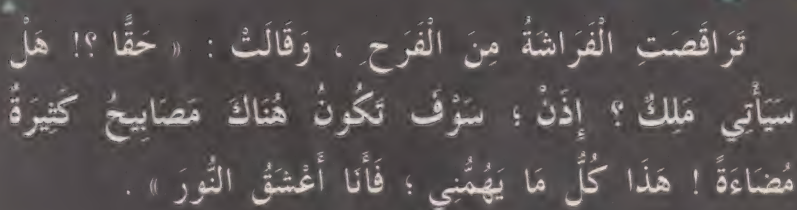 تَرَاقَصَتِ الْفَرَاشَةُ مِنَ الْفَرَحِ ، وَقَالَتْ : « حَقًّا ؟! هَلْ
سَيَأْتِي مَلِكٌ ؟ إِذَنْ ؛ سَوْفَ تَكُونُ هُنَاكَ مَصَابِيحُ كَثِيرَةٌ
مُضَاءَةً ! هَذَا كُلُّ مَا يَهُمُّنِي ؛ فَأَنَا أَعْشَقُ النُّورَ » .